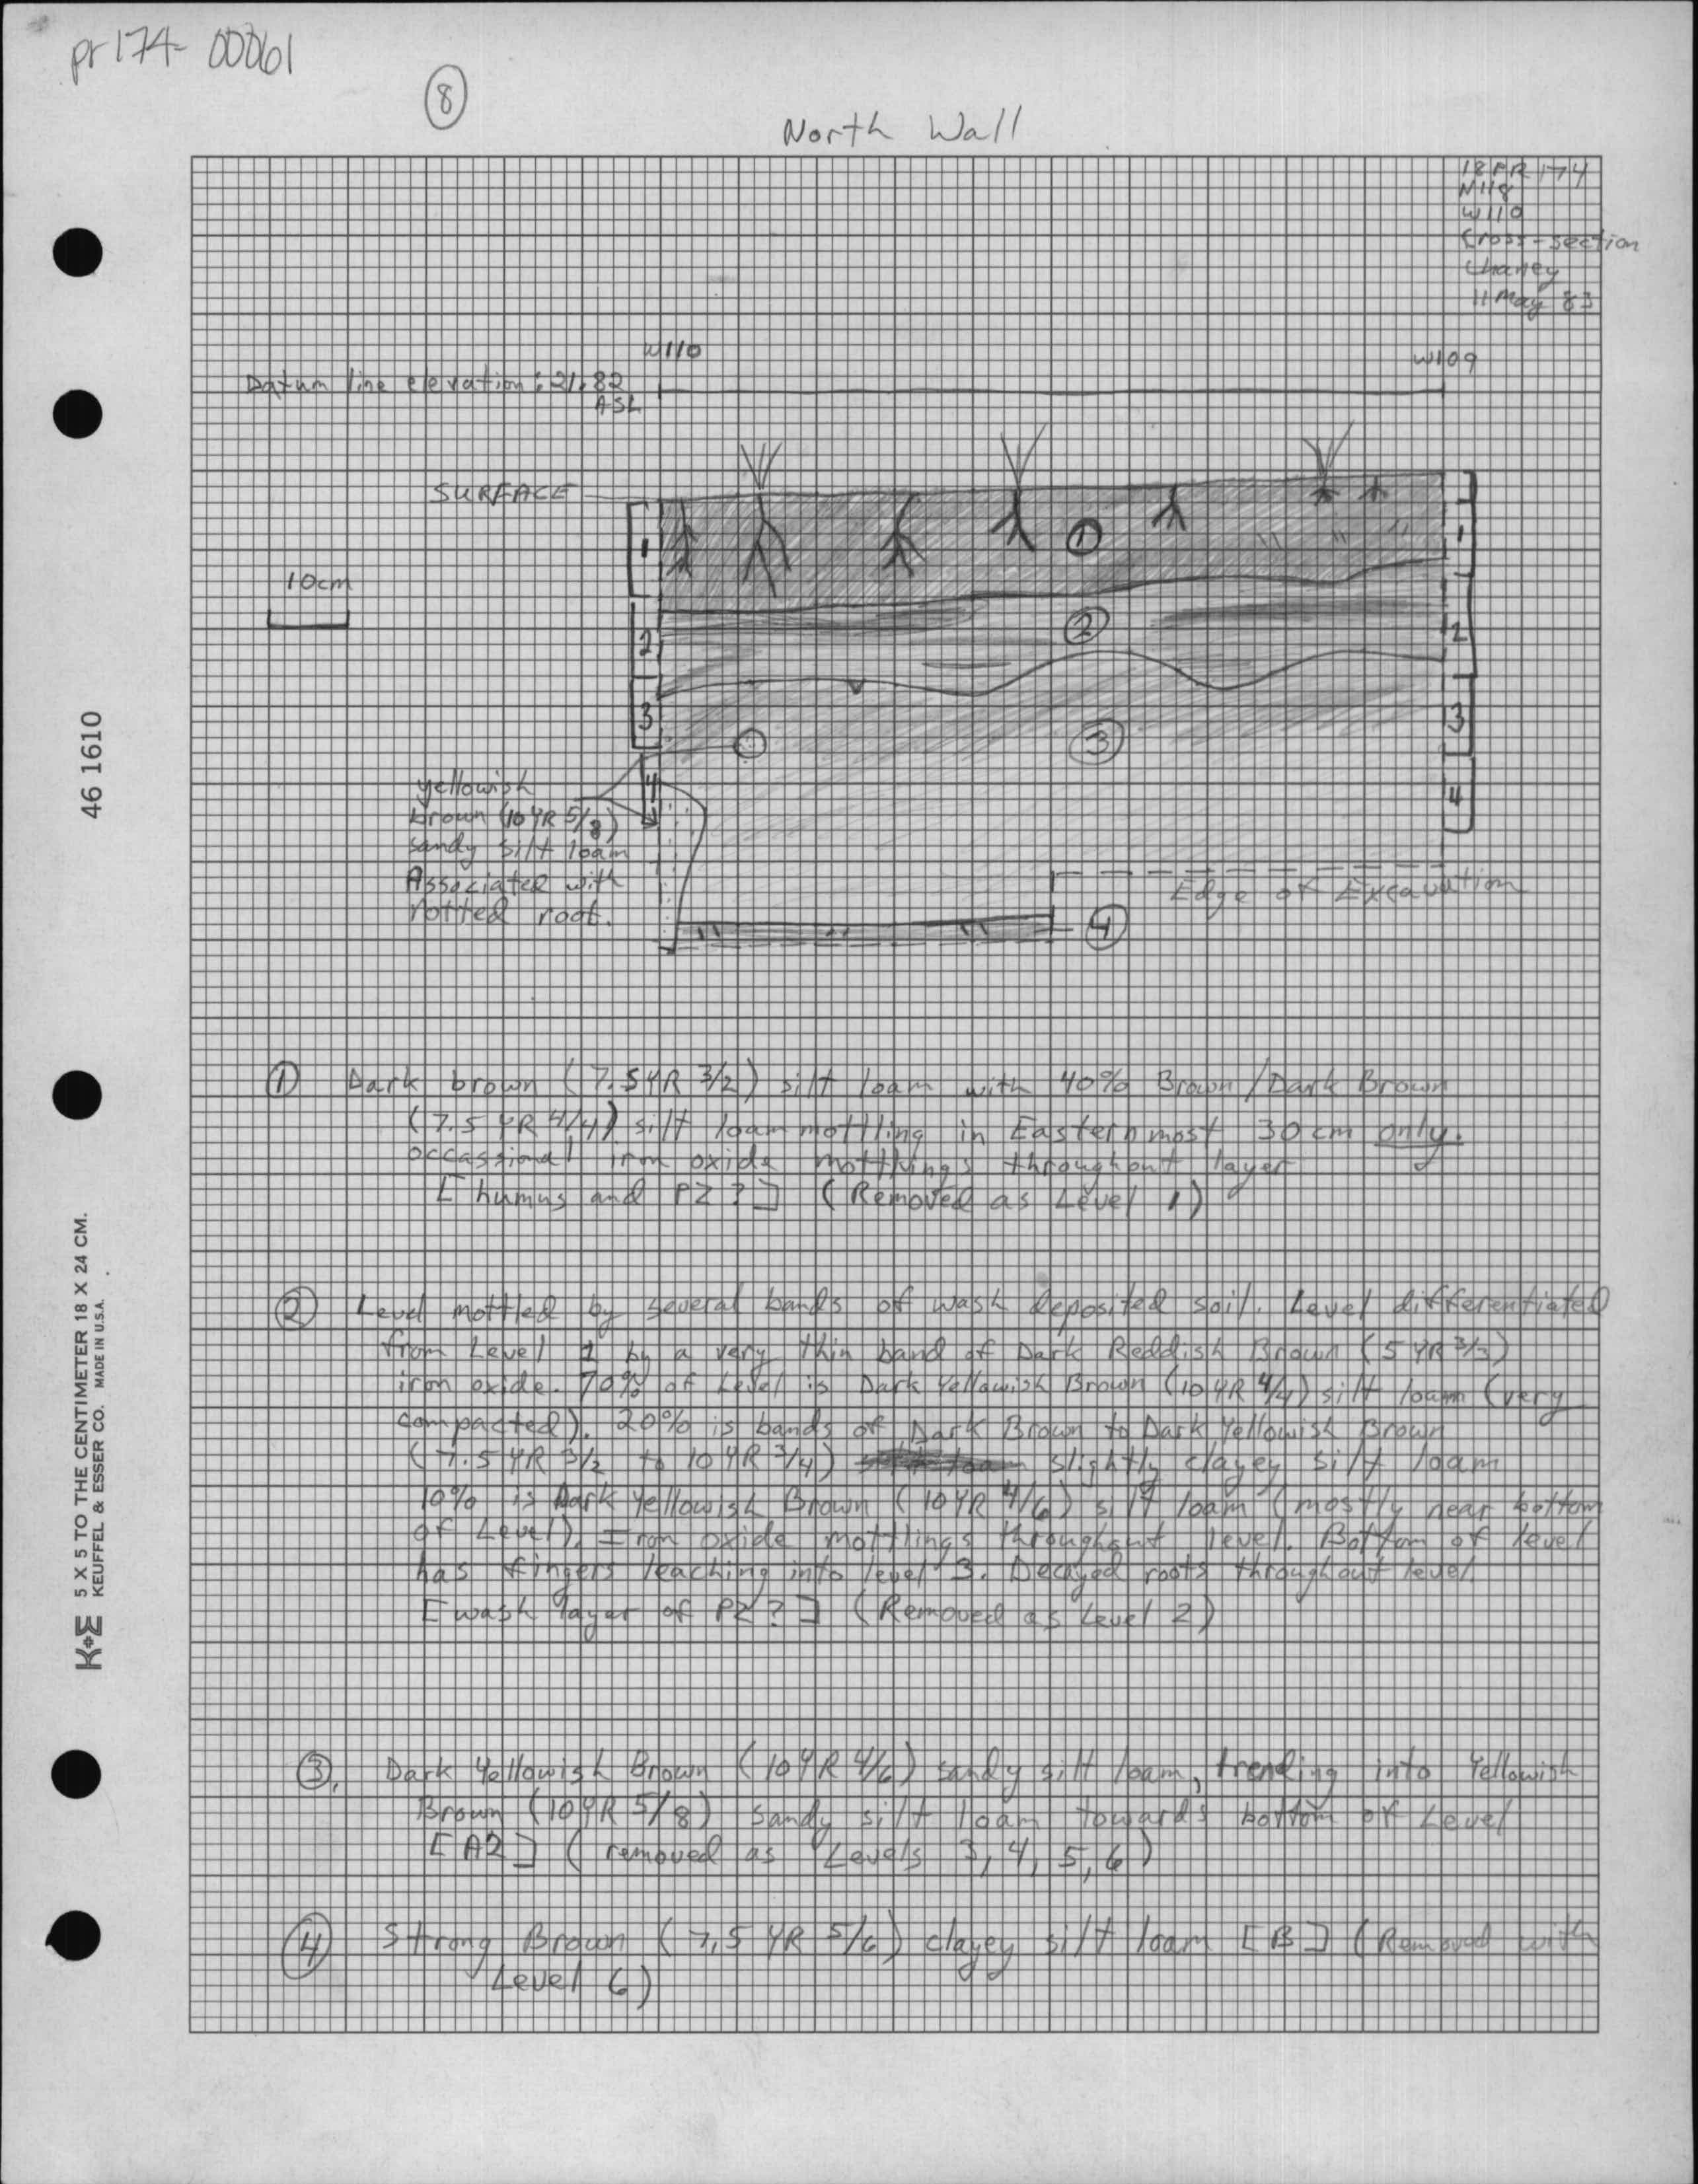 pr174-00061
8
North Wall
18PR174
N118
W110
Cross-section
Chaney
11 May 83
W110
W109
Datum line elevation: 21.82
ASL
SURFACE
10cm
1
1
1
2
2
2
3
3
3
4
4
yellowish
brown (10YR 5/8)
sandy silt loam
Associated with
rotted root.
Edge of Excavation
4
46 1610
① Dark brown (7.5YR 3/2) silt loam with 40% Brown/Dark Brown
(7.5 YR 4/4) silt loam mottling in Easternmost 30cm only.
occassional iron oxide mottlings throughout layer
[humus and PZ?] (Removed as Level 1)
② Level mottled by several bands of wash deposited soil. Level differentiated
from Level 1 by a very thin band of Dark Reddish Brown (5YR 3/3)
iron oxide. 70% of Level is Dark Yellowish Brown (10YR 4/4) silt loam (very
compacted). 20% is bands of Dark Brown to Dark Yellowish Brown
(7.5YR 3/2 to 10YR 3/4) slightly clayey silt loam
10% is Dark Yellowish Brown (10YR 4/6) silt loam (mostly near bottom
of Level). Iron oxide mottlings throughout level. Bottom of level
has fingers leaching into level 3. Decayed roots throughout level.
[wash layer of PZ?] (Removed as Level 2)
③. Dark Yellowish Brown (10YR 4/6) sandy silt loam, trending into Yellowish
Brown (10YR 5/8) sandy silt loam towards bottom of Level
[A2] (removed as Levels 3, 4, 5, 6)
④ Strong Brown (7.5 YR 5/6) clayey silt loam [B] (Removed with
Level 6)
K+E 5 X 5 TO THE CENTIMETER 18 X 24 CM.
KEUFFEL & ESSER CO. MADE IN U.S.A.